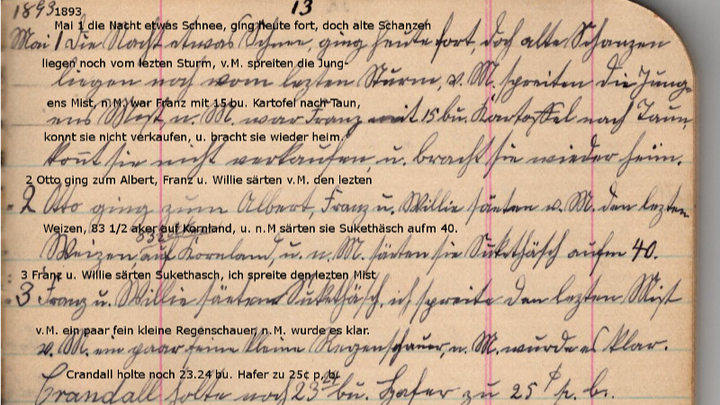 1893 13
1893
Mai 1 die Nacht etwas Schnee, ging heute fort, doch alte Schanzen
Mai 1 die Nacht etwas Schnee, ging heute fort, doch alte Schanzen
liegen noch vom lezten Sturm, v.M. spreiten die Jung-
liegen noch vom lezten Sturm, v. M. spreiten die Jung-
ens Mist, n.M. war Franz mit 15 bu. Kartofel nach Taun,
ens Mist, n. M. war Franz mit 15 bu. Kartoffel nach Taun,
konnt sie nicht verkaufen, u. bracht sie wieder heim.
konnt sie nicht verkaufen, u. bracht sie wieder heim.
2 Otto ging zum Albert, Franz u. Willie särten v.M. den lezten
2 Otto ging zum Albert, Franz u. Willie säeten v. M. den lezten
Weizen, 83 1/2 aker auf Kornland, u. n.M särten sie Sukethäsch aufm 40.
Weizen, auf Kornland, u. n. M. säeten sie Sukethäsch aufm 40.
3 Franz u. Willie särten Sukethasch, ich spreite den lezten Mist
3 Franz u. Willie säeten Sukethäsch, ich spreite den lezten Mist
v.M. ein paar fein kleine Regenschauer, n.M. wurde es klar.
v. M. ein paar feine kleine Regenschauer, n. M. wurde es klar.
Crandall holte noch 23.24 bu. Hafer zu 25¢ p. b.
Crandall holte noch 23 bu. Hafer zu 25 ¢ p. b.